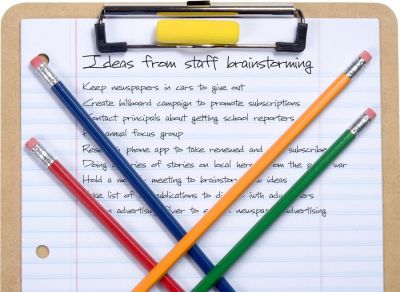 Ideas from staff brainstorming
Keep newspapers in cars to give out
Create billboard campaign to promote subscriptions
Contact principals about getting school reporters
annual focus group
phone app to take renewed and subscribe
Doing of stories on local from the war
Hold a meeting to brainstorm ideas
list of publications to with advertisers
advertising to newspaper advertising